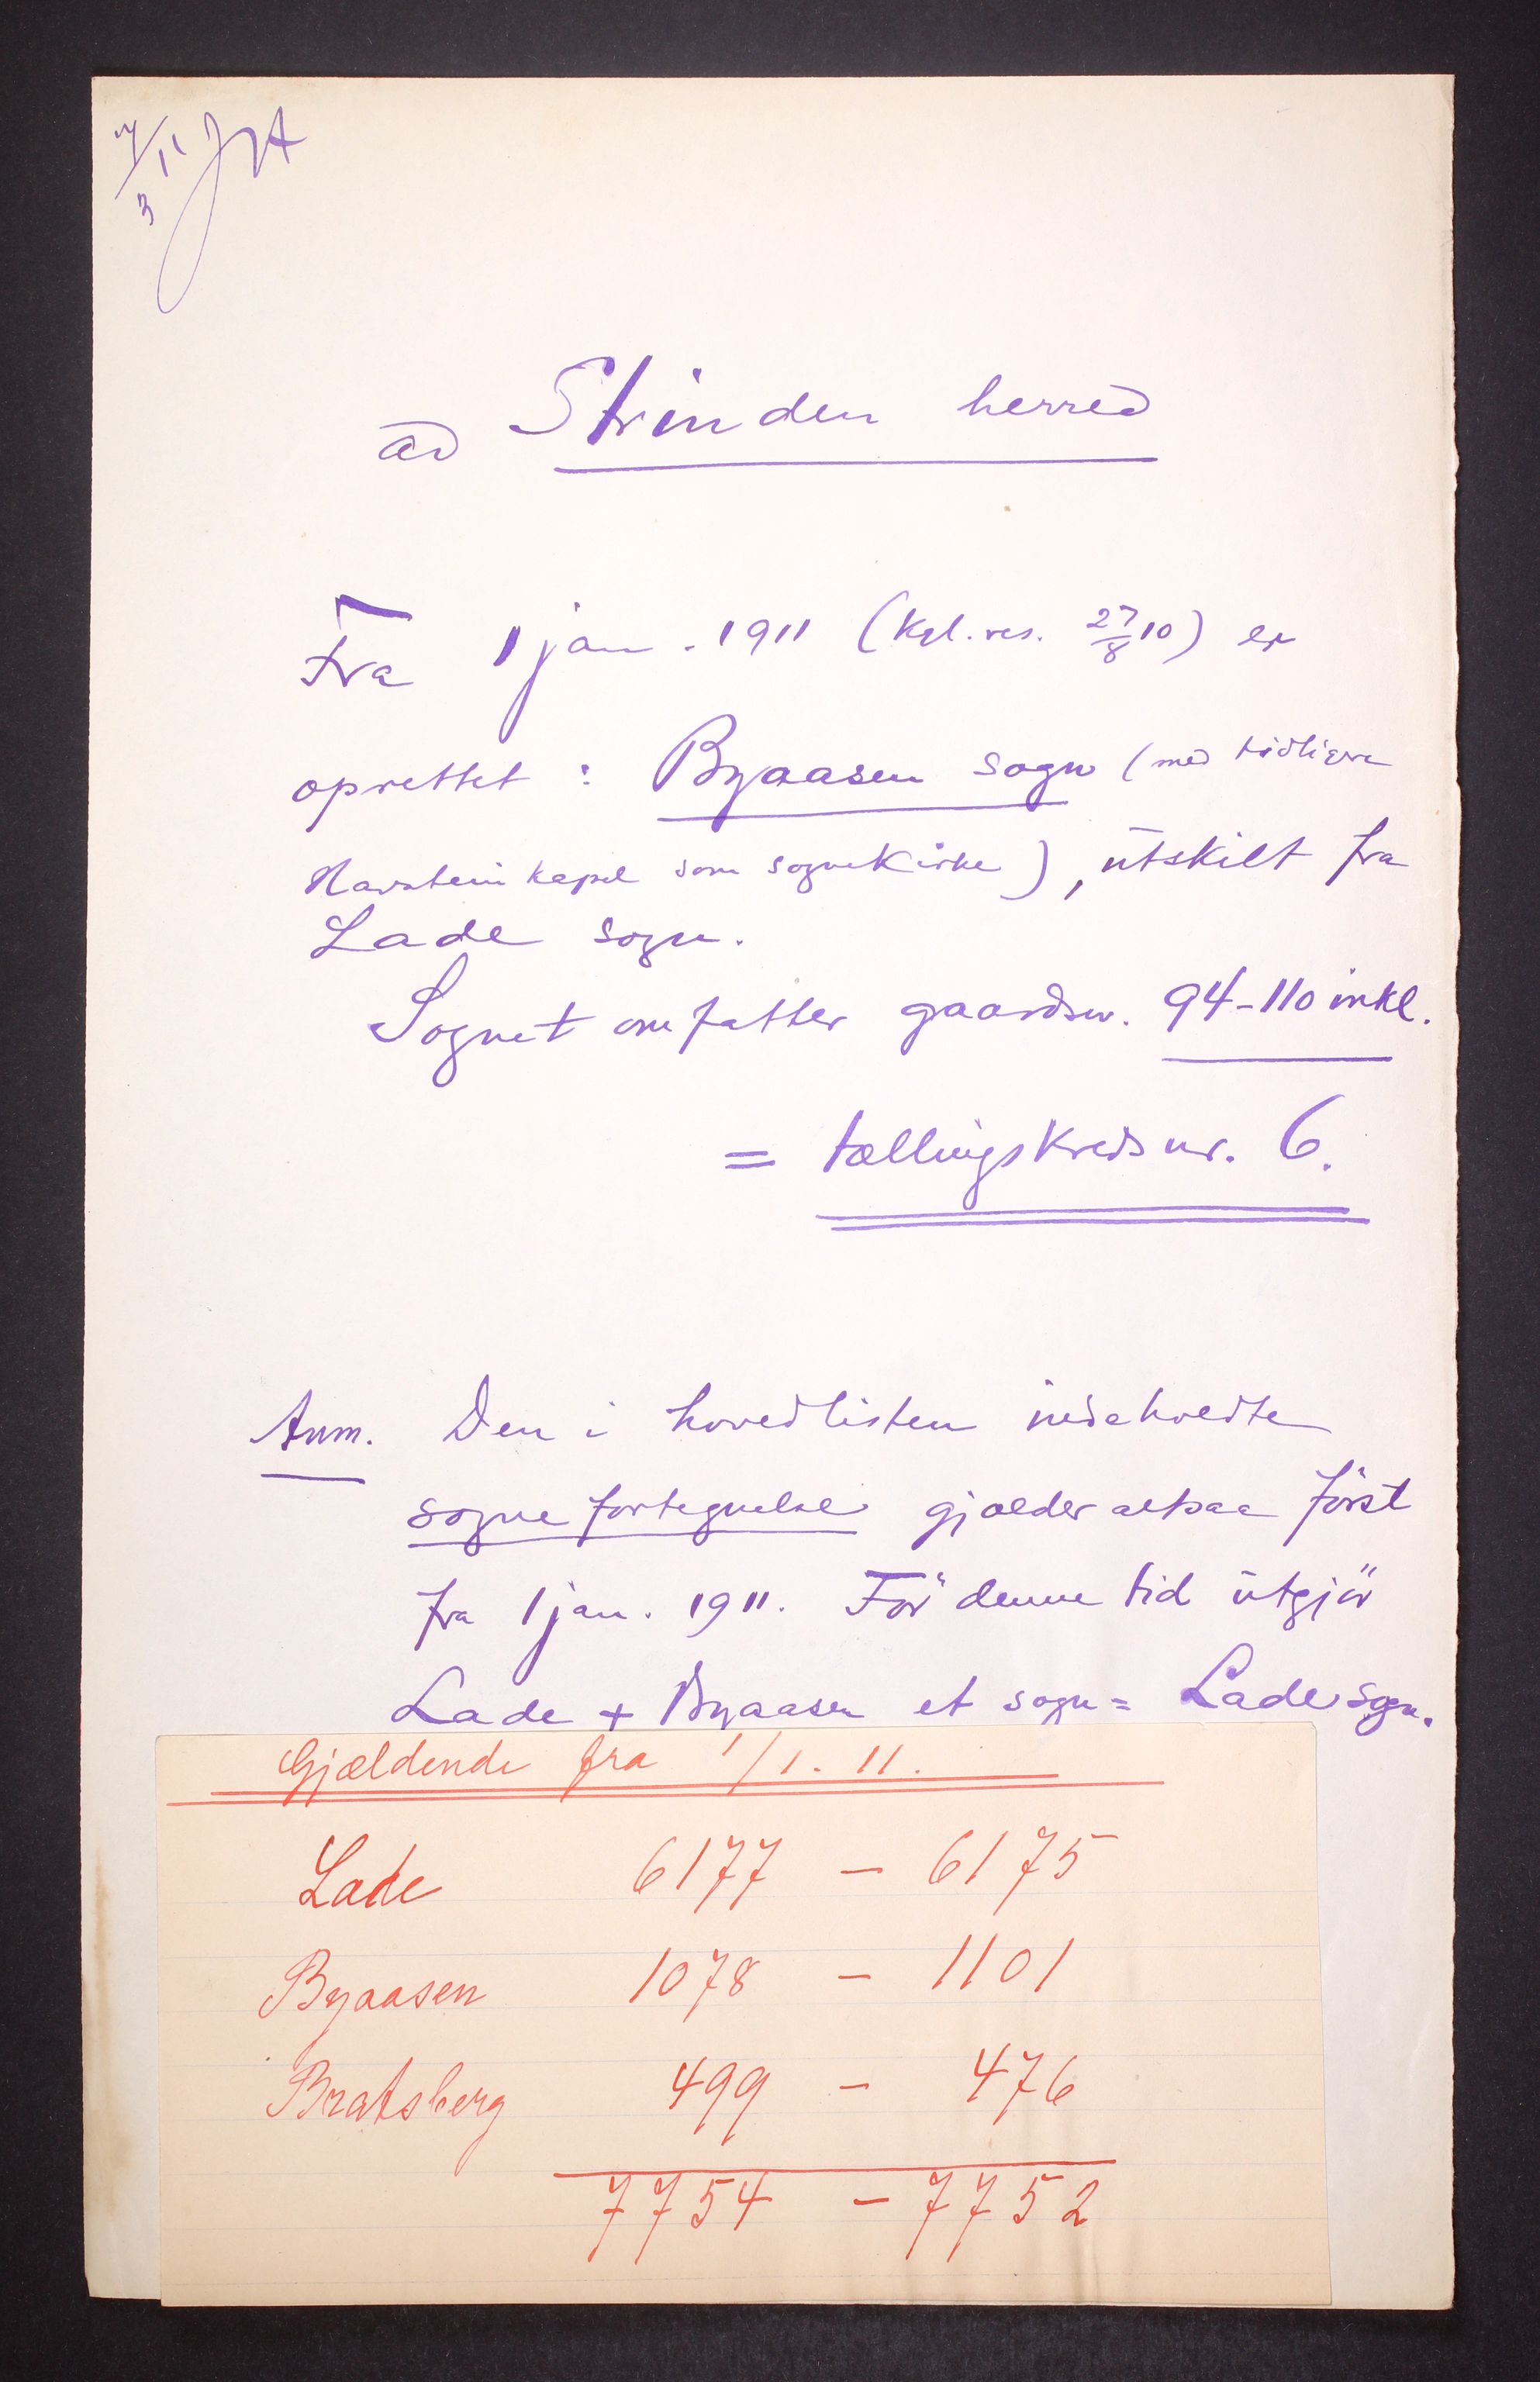 7/3 11
ad Strinden herred
Fra 1 jan. 1911 (kgl. res. 27/8 10) er
oprettet: Byaasen sogn (med tidligere
Havstein kapel som sognekirke), utskilt fra
Lade sogn.
Sognet omfatter gaardsnr. 94-110 inkl.
= tællingskreds nr. 6.
Anm. Den i hovedlisten indeholdte
sognefortegnelse gjælder altsaa först
fra 1 jan. 1911. För denne tid utgjör
Lade + Byaasen et sogn = Lade sogn.
Gjældende fra 1/1. 11.
Lade 6177 - 6175
Byaasen 1078 - 1101
Bratsberg 499 - 476
7754 - 7752